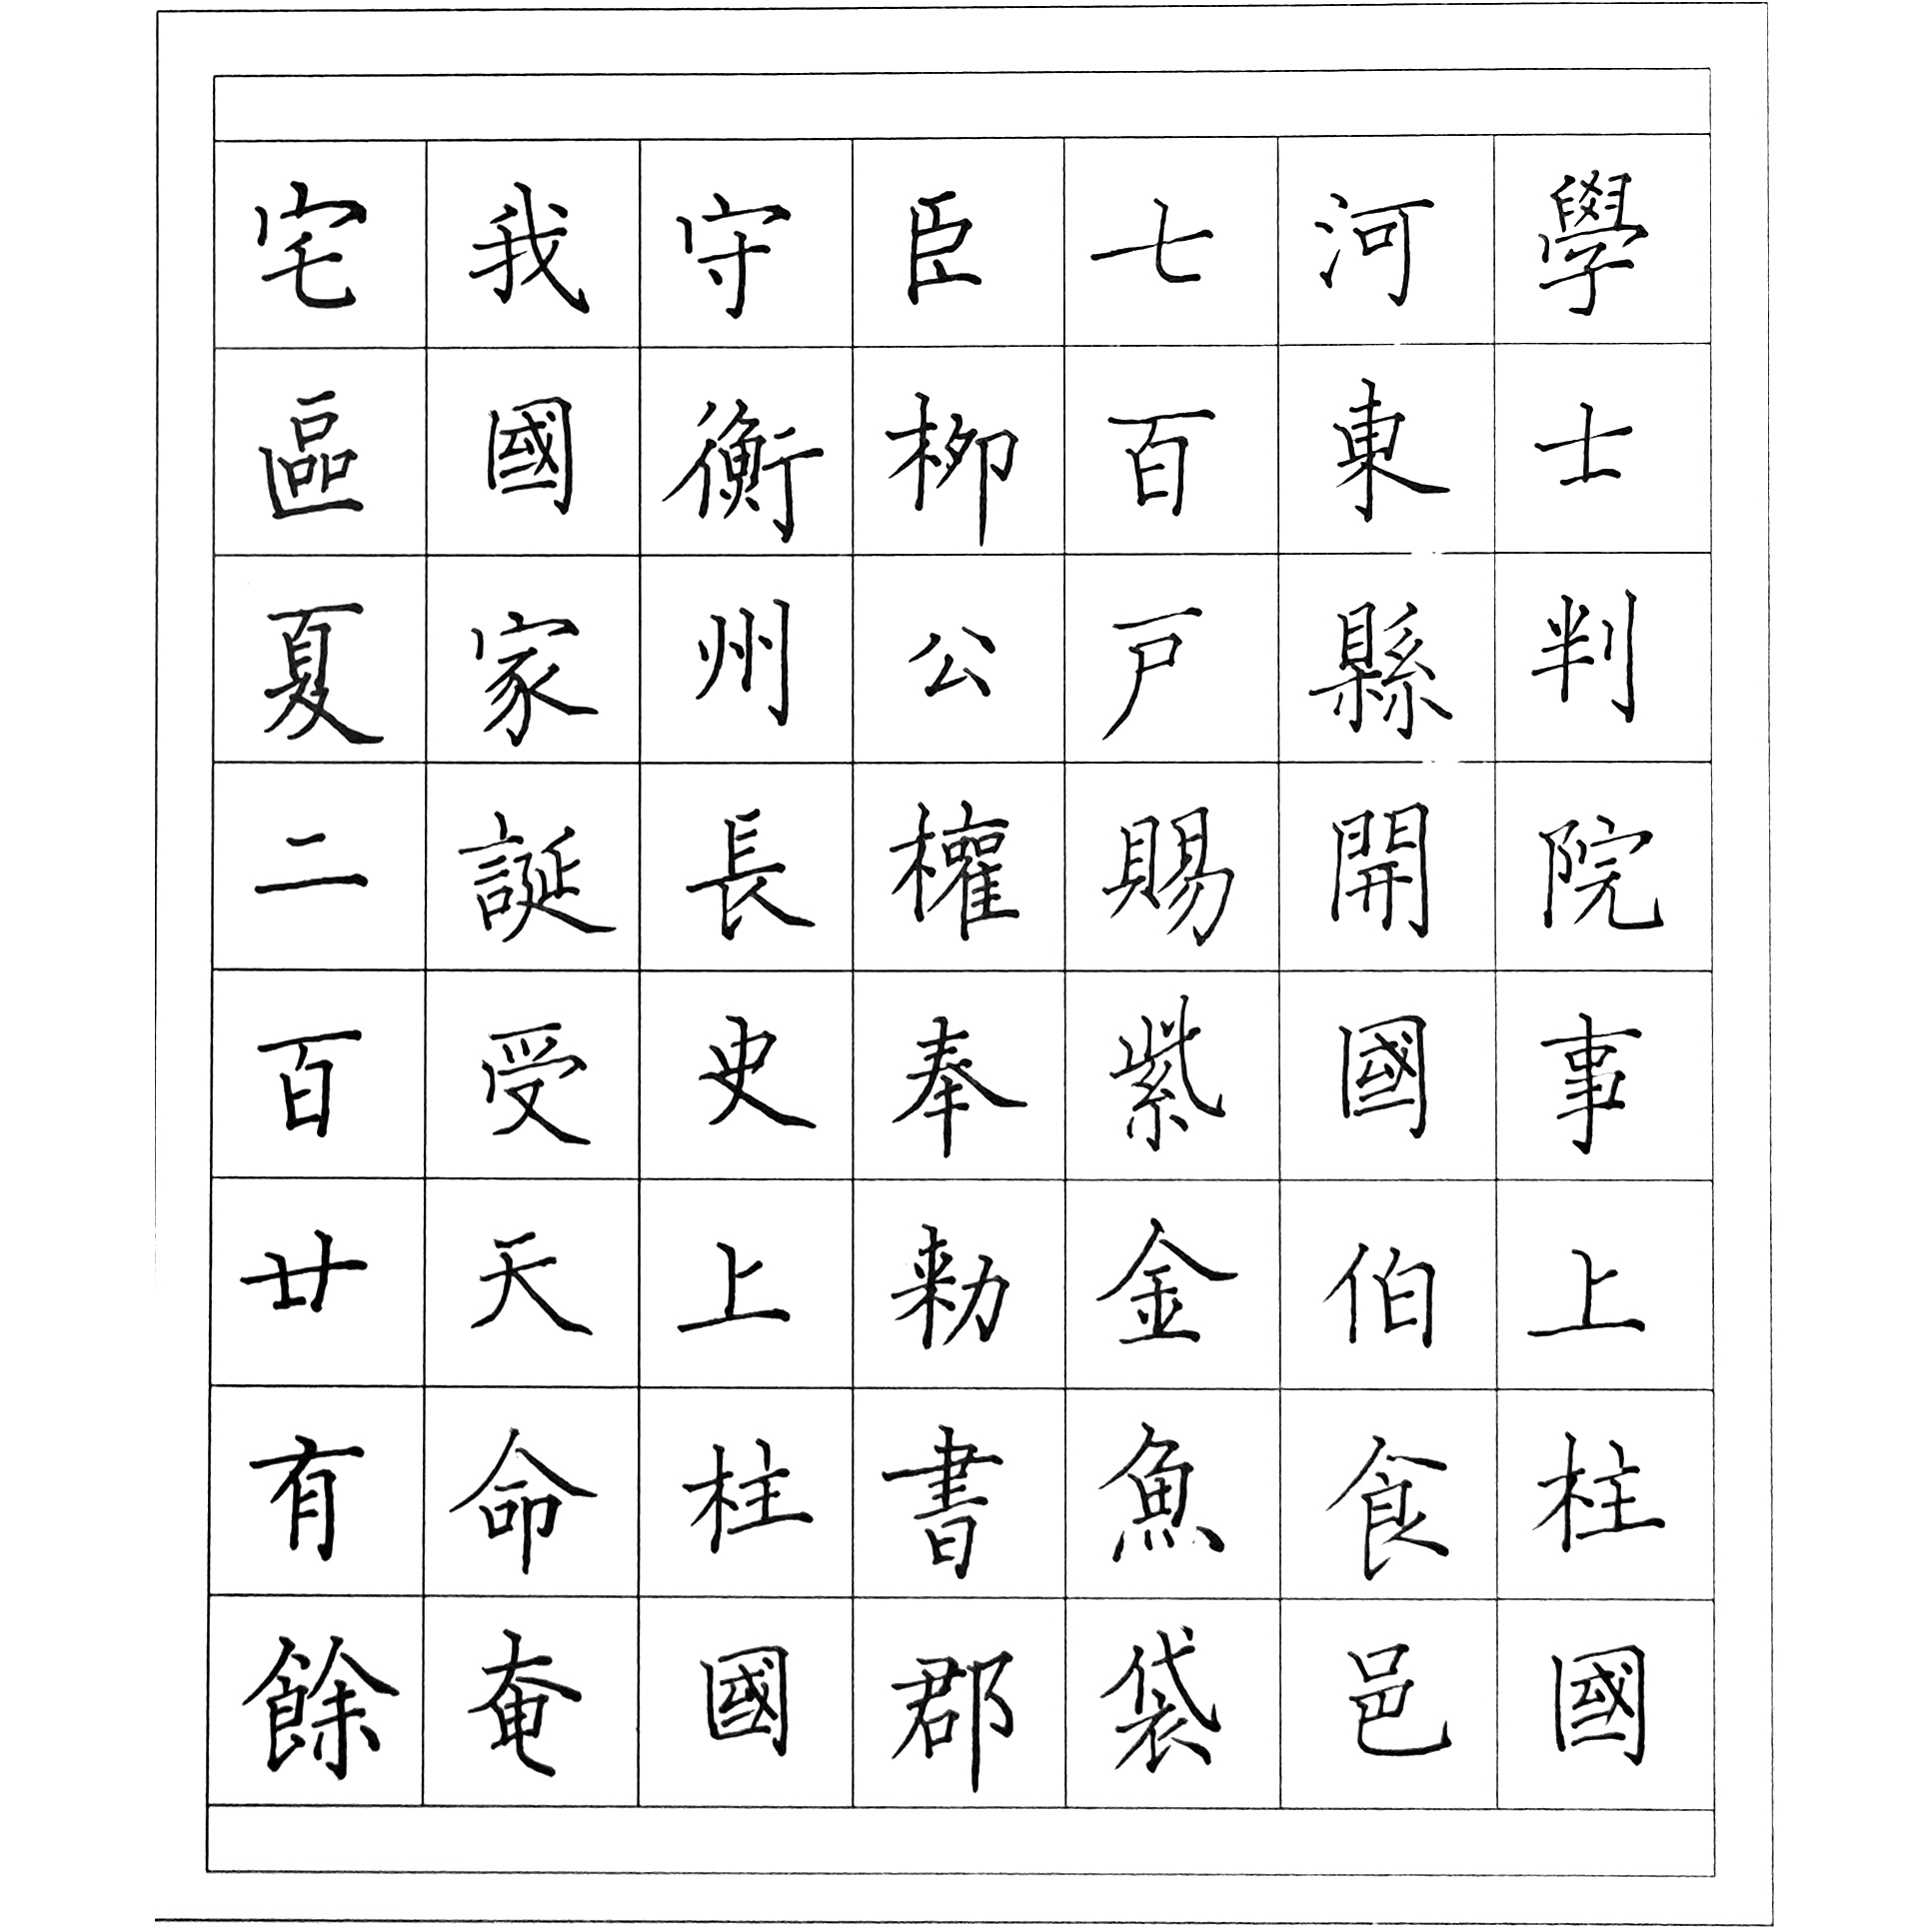 學士判院事上柱國
河東縣開國伯食邑
七百戶賜紫金魚袋
臣柳公權奉勑書郡
守衡州長史上柱國
我國家誕受天命奄
宅區夏二百廿有餘